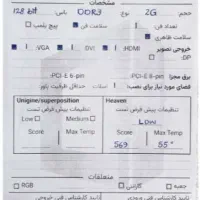 مشخصات
حجم: 2G نوع: DDR3 باس: 128 bit
تعداد فن: سلامت فن پیچ پلمپ
سلامت ظاهری
خروجی تصویر HDMI: DVI: VGA:
DP:
برق مجزا PCI-E 8-pin: PCI-E 6-pin:
فضای مورد نیاز برای نصب: سلات حداقل ظرفیت پاور:
Unigine/superposition Heaven
تنظیمات پیش فرض تست تنظیمات پیش فرض تست
Low Medium LOW
Score Max Temp Score Max Temp
569 55°
متعلقات
جعبه گارانتی RGB
تایید کارشناس فنی خروجی